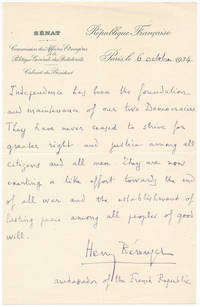 SÉNAT
République Française
Commission des Affaires Étrangères
et de
Politique Générale des Protectorats
Cabinet du Président
Paris, le 6 october 1934.
Independence has been the foundation
and maintenance of our two Democracies
They have never ceased to strive for
greater right and justice among all
citizens and all men. They are now
exerting a like effort towards the end
of all war and the establishment of
lasting peace among all peoples of good
will.
Henry Bérenger
ambassador of the French Republic